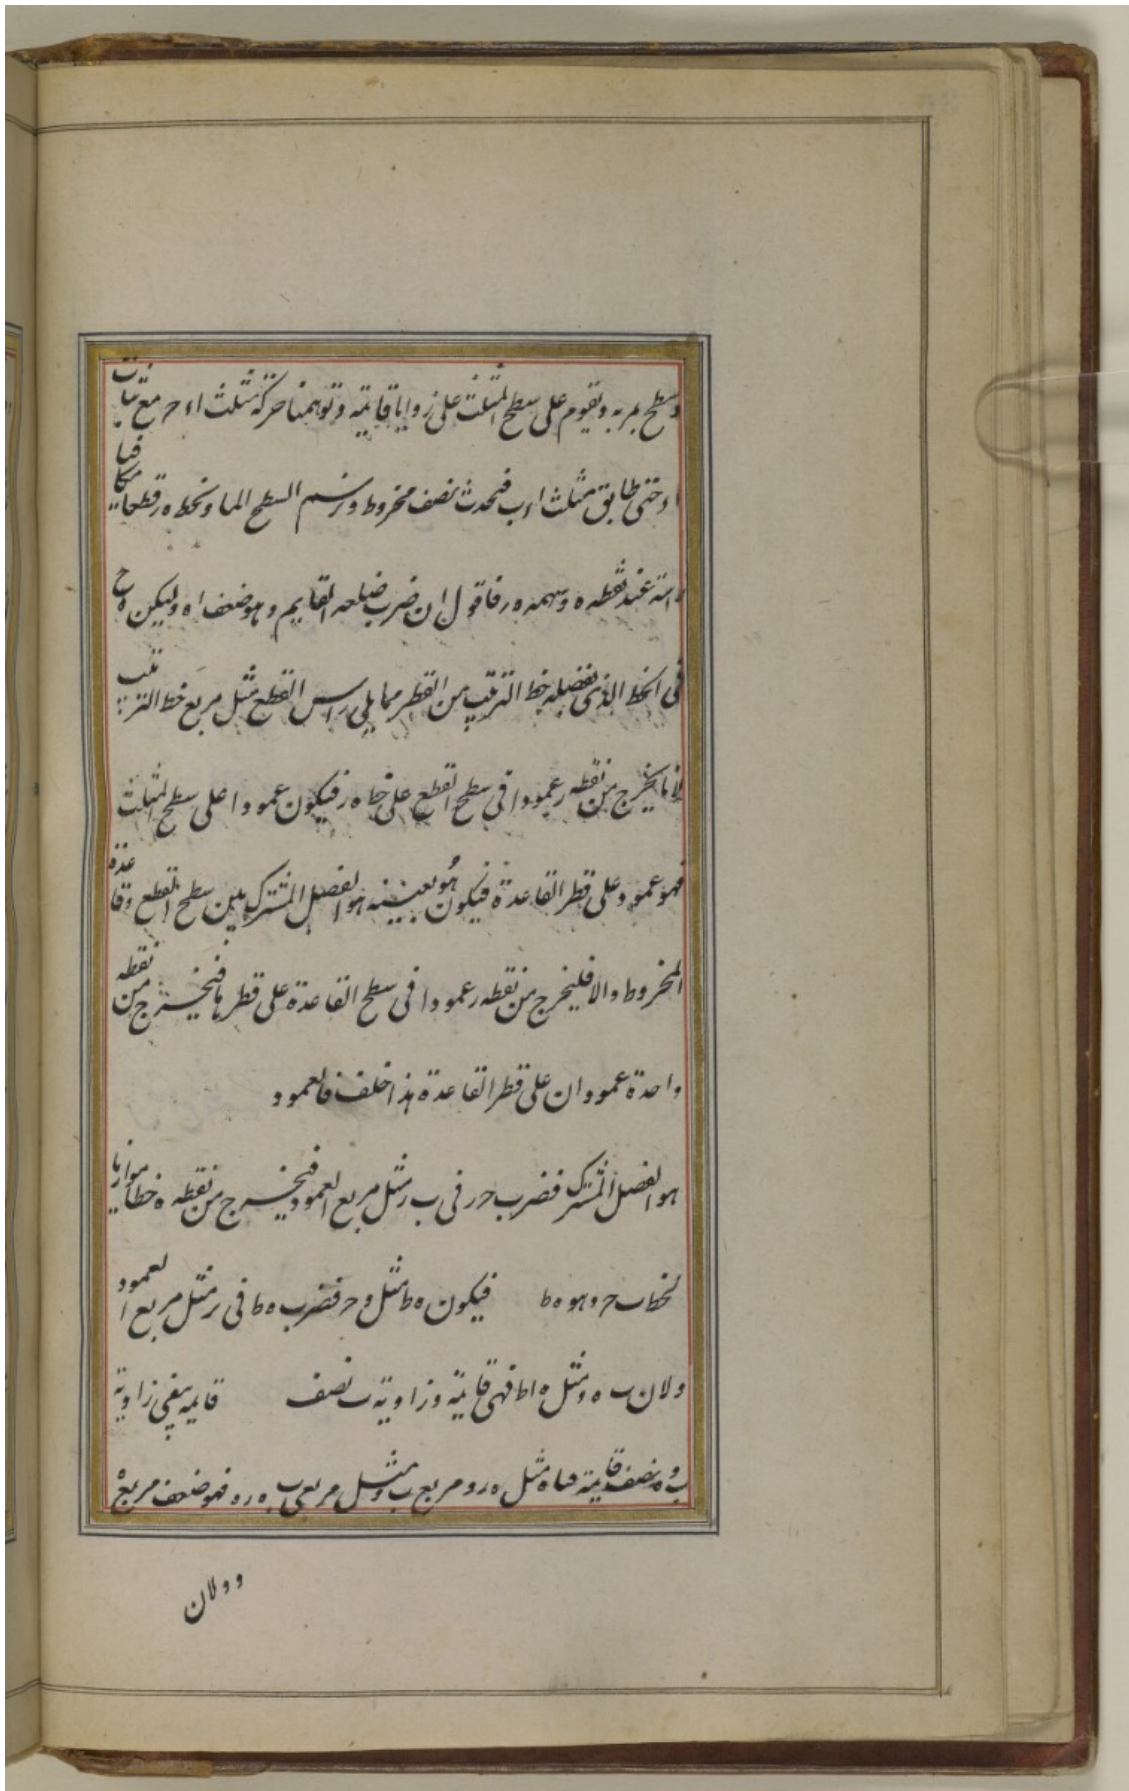 وسطح يمر به ويقوم على سطح المثلث على زوايا قايمة وتوهمنا حركة مثلث اء حـ مع ثبات
اء حتى طابق مثلث اء ب فيحدث نصف مخروط ورسم السطح المار بخط ه ر قطعا مكافيا
راسه عند نقطه ه وسهمه ه ر فاقول ان ضرب ضلعه القايم وهو ضعف اه وليكن ه ح
فى الخط الذى يفصله خط الترتيب من القطر مما يلى راس القطع مثل مربع خط الترتيب
لانا نخرج من نقطه ر عمودا فى سطح القطع على خط ه ر فيكون عمودا على سطح المثلث
فهو عمود على قطر القاعدة فيكون هو بعينه هو الفصل المشترك بين سطح القطع وقاعدة
المخروط والا فليخرج من نقطه ر عمودا فى سطح القاعدة على قطرها فيخرج من نقطه
واحدة عمودان على قطر القاعدة هذا خلف فالعمود
هو الفصل المشترك فضرب حـ ر فى ب ر مثل مربع العمود فيخرج من نقطه ه خطا موازيا
لخط ب حـ وهو ه ط فيكون ه ط مثل ر حـ فضرب ه ط فى ب ر مثل مربع العمود
ولان ب ه ر مثل ه ا ط فهى قايمة وزاوية ب نصف قايمه يبقى زاوية
ب ر ه نصف قايمة ه مثل ه ر ومربع ب ر مثل مربعى ب ه ه ر فهو ضعف مربع ه
ر ولان